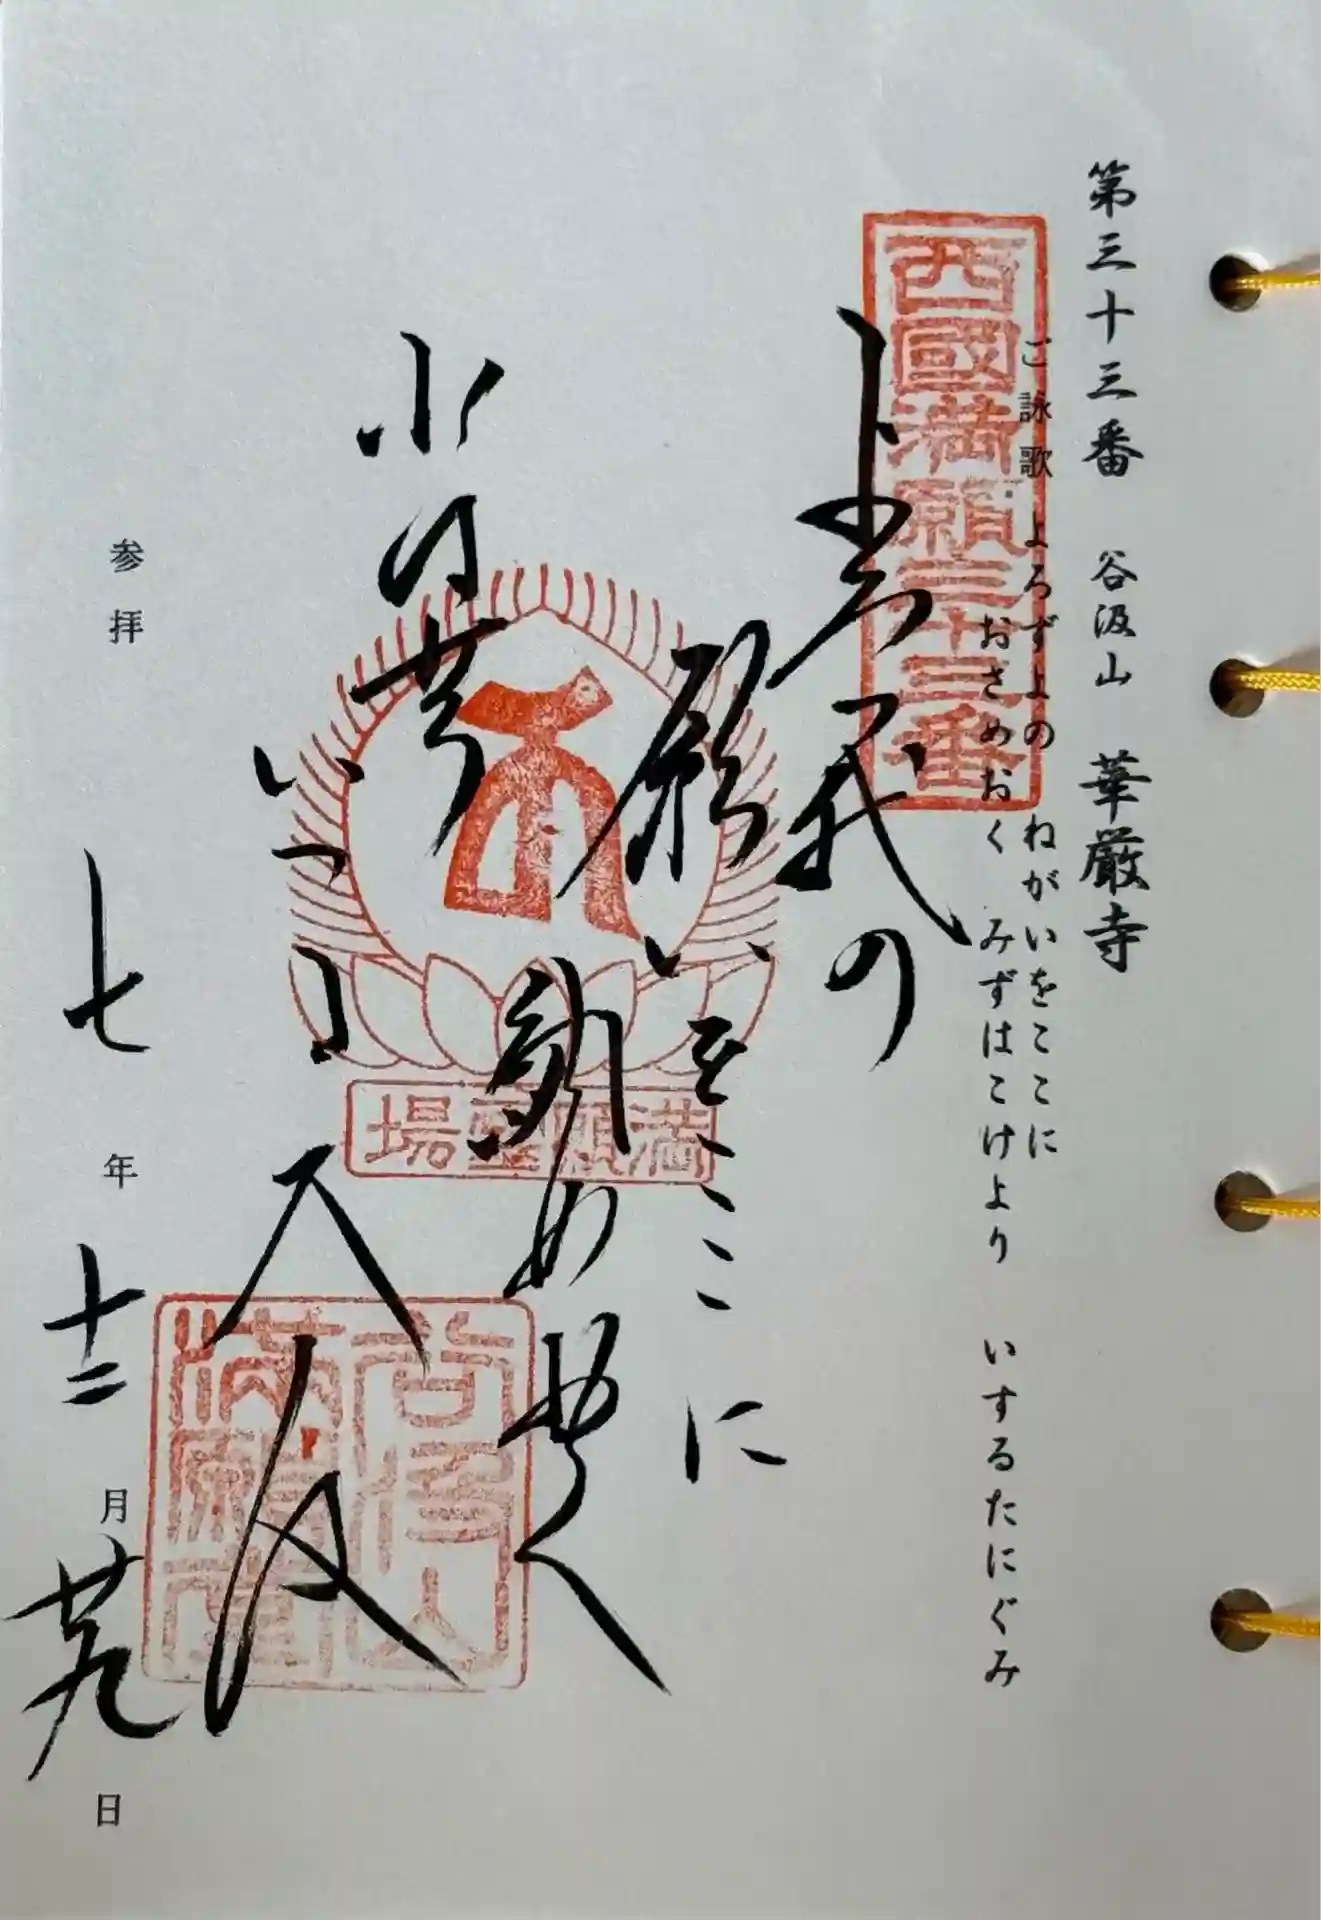 第三十三番 谷汲山 華厳寺
ご詠歌 よろずよの ねがいをここに
おさめおく みずはこけより いするたにぐみ
西國満願三十三番
代の
願いをここに
納めおく
水は苔
谷汲
満願霊場
谷汲山
満願堂
参拝 七年十二月廿九日